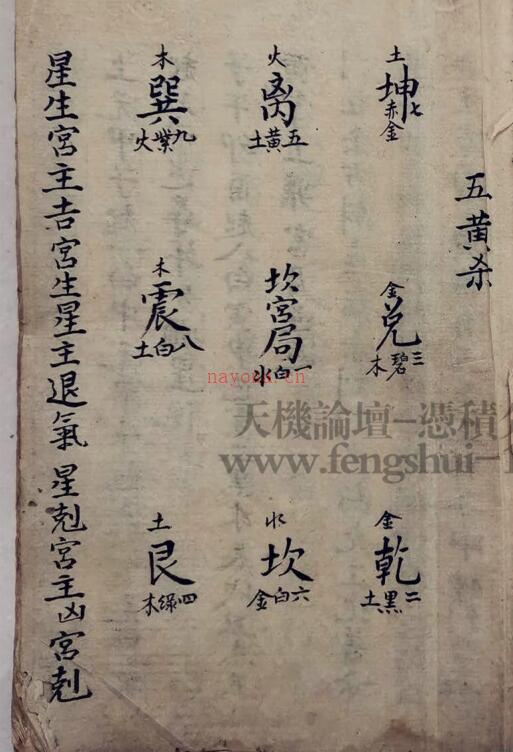 五黄杀
土
坤
七赤金
金
兑
三碧木
金
乾
二黑土
火
离
五黄土
坎宫局
一白水
水
坎
六白金
木
巽
九紫火
木
震
八白土
土
艮
四绿木
星生宮主吉宮生星主退氣 星剋宮主凶宮剋
nayona.cn
天機論壇-憑積
www.fengshui-